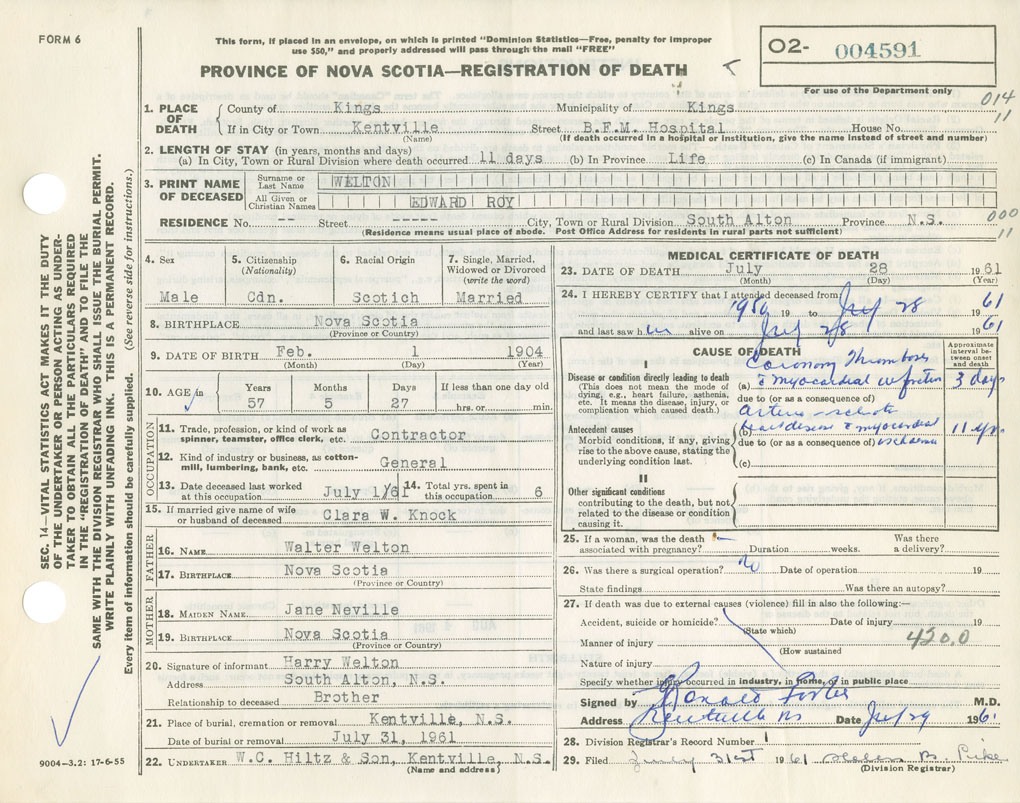 FORM 6
This form, if placed in an envelope, on which is printed "Dominion Statistics—Free, penalty for improper
use $50," and properly addressed will pass through the mail "FREE"
PROVINCE OF NOVA SCOTIA—REGISTRATION OF DEATH
O2- 004591
For use of the Department only
014
11
1. PLACE OF DEATH
County of Kings Municipality of Kings
If in City or Town Kentville Street B.F.M. Hospital House No.
(Name) (If death occurred in a hospital or institution, give the name instead of street and number)
2. LENGTH OF STAY (in years, months and days)
(a) In City, Town or Rural Division where death occurred 11 days (b) In Province Life (c) In Canada (if immigrant)
3. PRINT NAME OF DECEASED
Surname or Last Name WELTON
All Given or Christian Names EDWARD ROY
RESIDENCE No. -- Street ----- City, Town or Rural Division South Alton Province N.S.
(Residence means usual place of abode. Post Office Address for residents in rural parts not sufficient)
000
11
4. Sex 5. Citizenship (Nationality) 6. Racial Origin 7. Single, Married, Widowed or Divorced (write the word)
Male Cdn. Scotich Married
8. BIRTHPLACE Nova Scotia
(Province or Country)
9. DATE OF BIRTH Feb. 1 1904
(Month) (Day) (Year)
10. AGE in Years Months Days If less than one day old
57 5 27 hrs. or min.
OCCUPATION
11. Trade, profession, or kind of work as spinner, teamster, office clerk, etc. Contractor
12. Kind of industry or business, as cotton-mill, lumbering, bank, etc. General
13. Date deceased last worked at this occupation July 1/61 14. Total yrs. spent in this occupation 6
15. If married give name of wife or husband of deceased Clara W. Knock
FATHER
16. NAME Walter Welton
17. BIRTHPLACE Nova Scotia
(Province or Country)
MOTHER
18. MAIDEN NAME Jane Neville
19. BIRTHPLACE Nova Scotia
(Province or Country)
20. Signature of informant Harry Welton
Address South Alton, N.S.
Relationship to deceased Brother
21. Place of burial, cremation or removal Kentville, N.S.
Date of burial or removal July 31, 1961
22. UNDERTAKER W.C. Hiltz & Son, Kentville, N.S.
(Name and address)
MEDICAL CERTIFICATE OF DEATH
23. DATE OF DEATH July 28 1961
(Month) (Day) (Year)
24. I HEREBY CERTIFY that I attended deceased from
1950 19 to July 28 1961
and last saw him alive on July 28 1961
CAUSE OF DEATH
Approximate interval between onset and death
I
Disease or condition directly leading to death
(This does not mean the mode of dying, e.g., heart failure, asthenia, etc. It means the disease, injury, or complication which caused death.)
(a) Coronary Thrombosis
c myocardial infarction 3 days
due to (or as a consequence of)
Arterio-sclerotic
Antecedent causes
Morbid conditions, if any, giving rise to the above cause, stating the underlying condition last.
(b) heart disease c myocardial 11 yrs
due to (or as a consequence of) ischaemia
(c)
II
Other significant conditions
contributing to the death, but not related to the disease or condition causing it.
25. If a woman, was the death associated with pregnancy? Duration weeks. Was there a delivery?
26. Was there a surgical operation? no Date of operation 19
State findings Was there an autopsy?
27. If death was due to external causes (violence) fill in also the following:—
Accident, suicide or homicide? Date of injury 19
(State which)
Manner of injury 420.0
(How sustained
Nature of injury
Specify whether injury occurred in industry, in home, or in public place
Signed by M.D.
Address Kentville NS Date July 29 1961
28. Division Registrar's Record Number
29. Filed 31st 1961
(Division Registrar)
SEC. 14—VITAL STATISTICS ACT MAKES IT THE DUTY
OF THE UNDERTAKER OR PERSON ACTING AS UNDER-
TAKER TO OBTAIN ALL THE PARTICULARS REQUIRED
IN THE "REGISTRATION OF DEATH" AND TO FILE THE
SAME WITH THE DIVISION REGISTRAR WHO SHALL ISSUE THE BURIAL PERMIT.
WRITE PLAINLY WITH UNFADING INK. THIS IS A PERMANENT RECORD.
Every item of information should be carefully supplied. (See reverse side for instructions.)
9004—3.2: 17-6-55